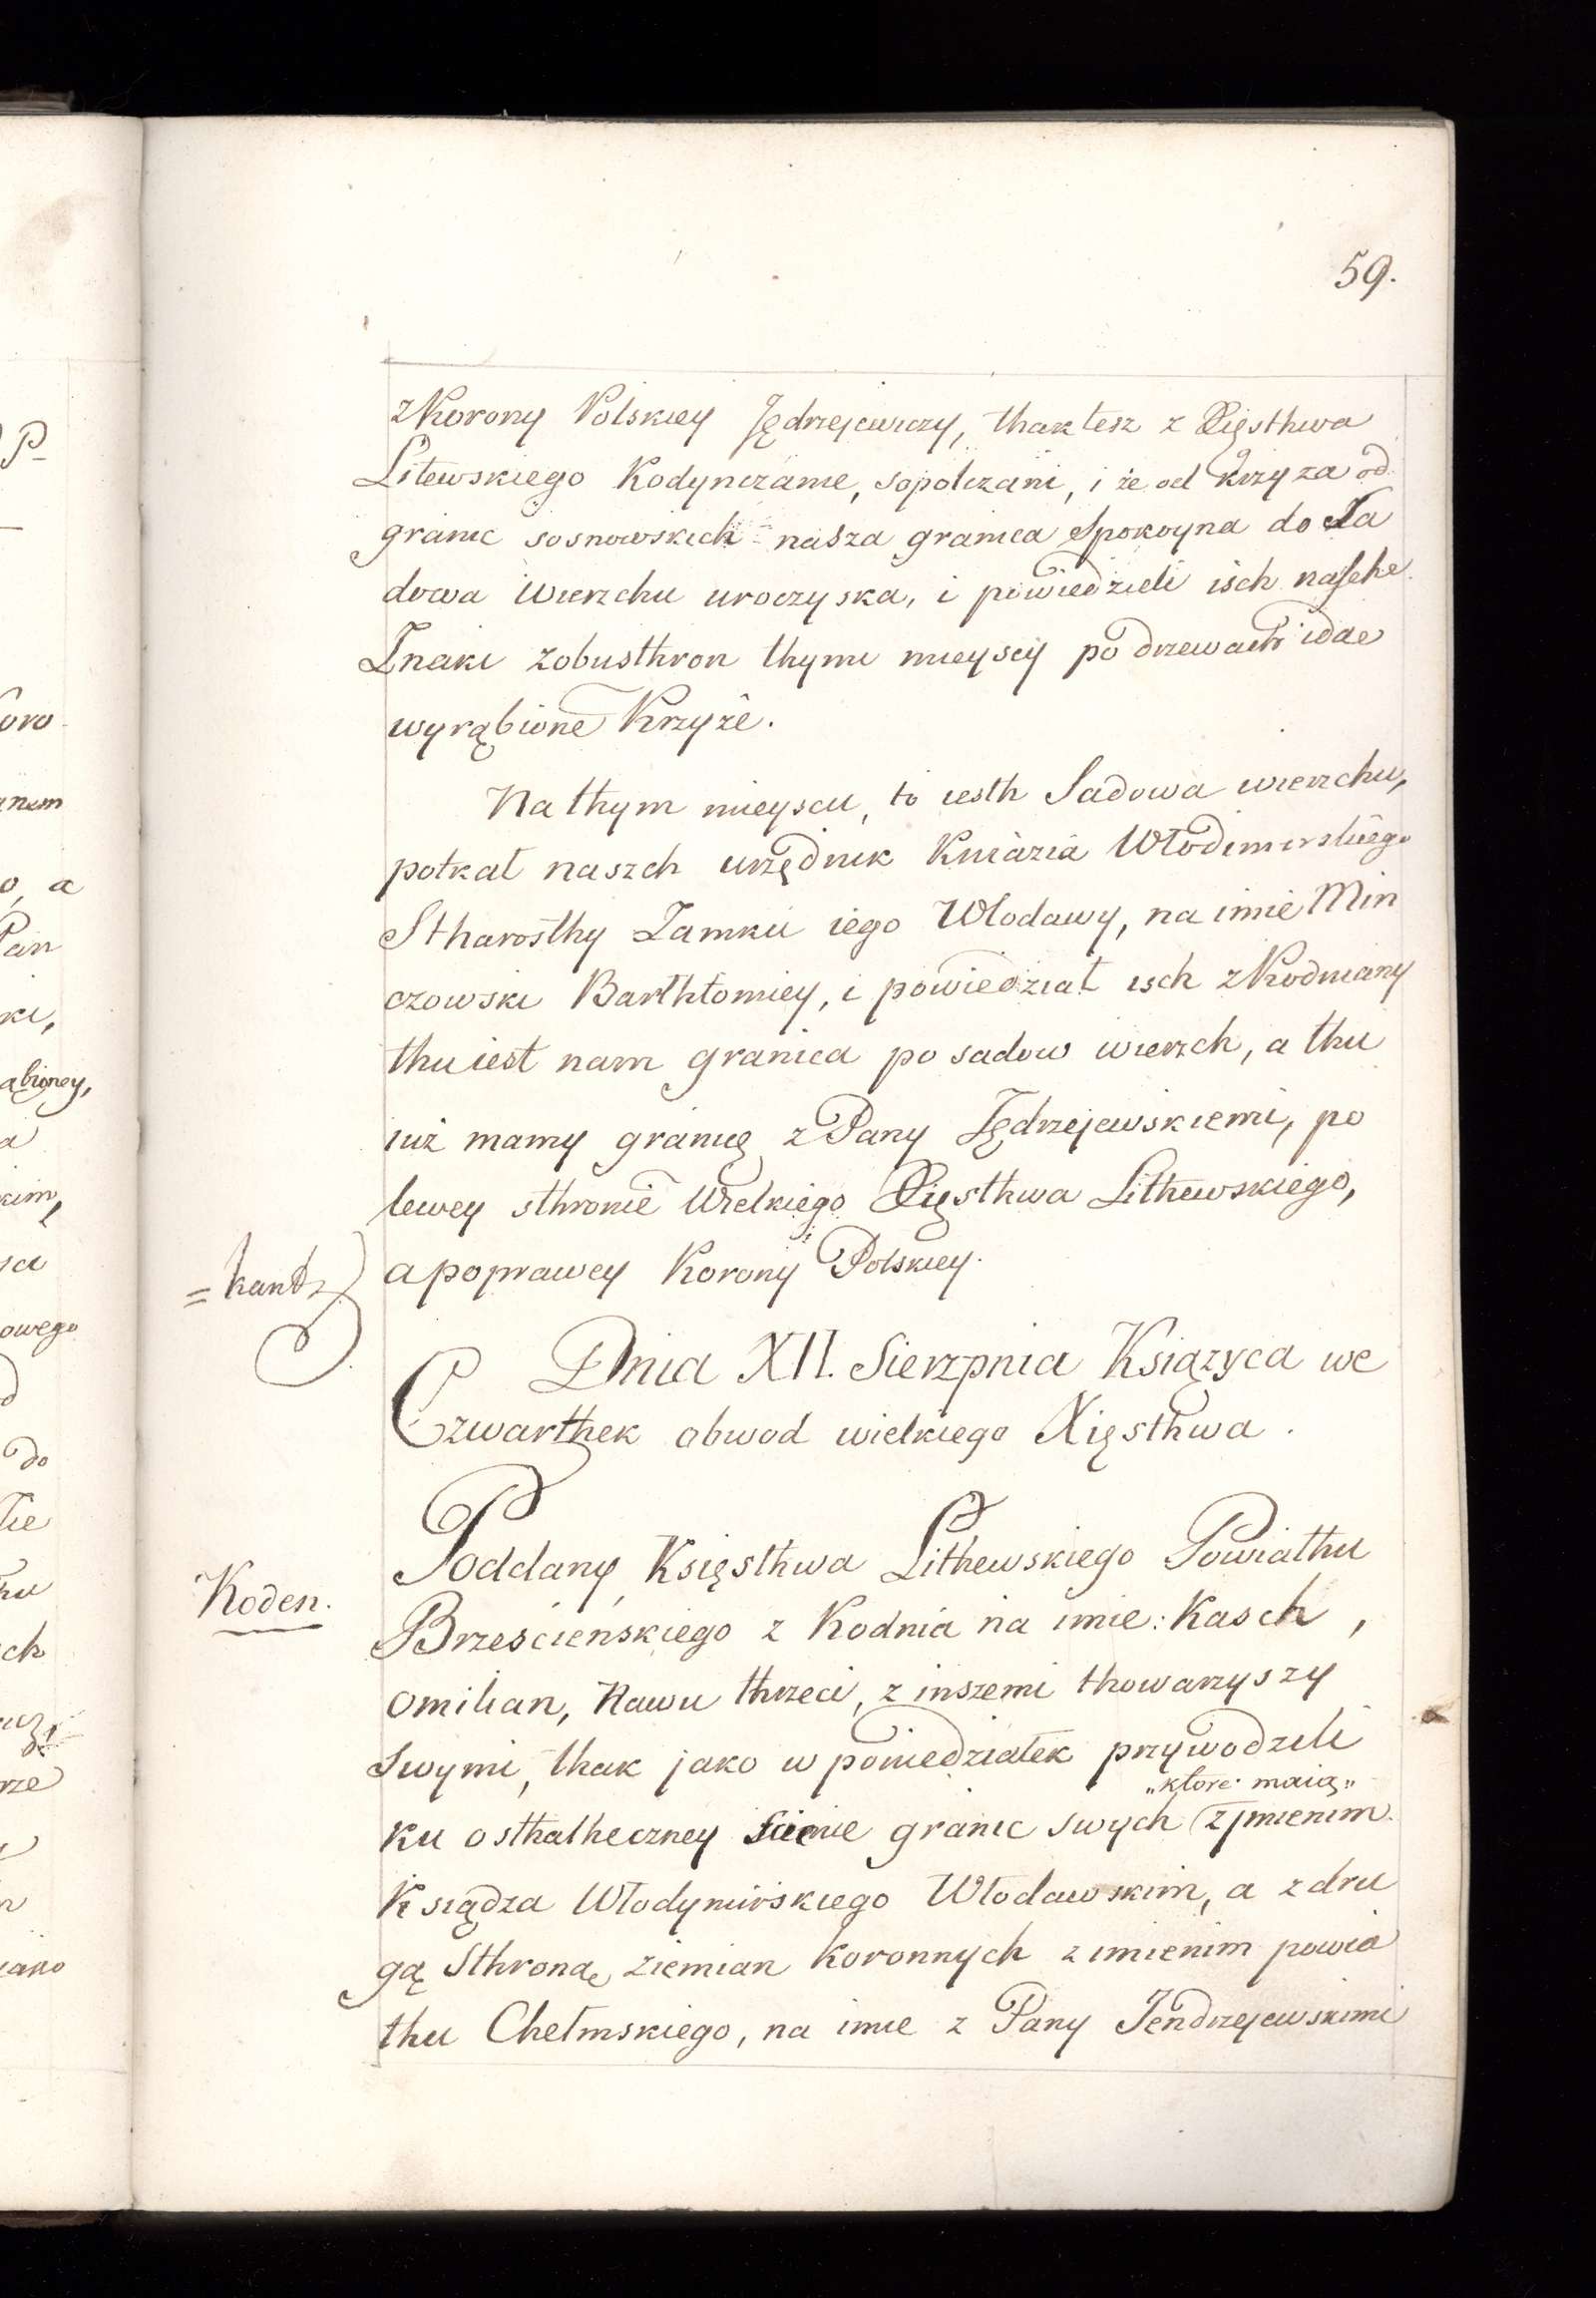 59.
z Korony Polskiey Jędrzejewiczy, thaktesz z Xięsthwa
Litewskiego Kodynczanie, sopolczani, i że od krzyza od
granic sosnowskich nasza granica spokoyna do Sa
dowa wierzchu uroczyska, i powiedzieli isch nasche
Znaki zobusthron thymi mieyscy po drzewach idae
wyrąbione Krzyże.
Na thym mieyscu, to iesth Sadowa wierzchu,
potkał naszch urzędnik Kniazia Włodimirskiego
Stharosthy Zamku iego Włodawy, na imie Min
czowski Barthłomiey, i powiedział isch z Kodniany
thu iest nam granica po sadow wierzch, a thu
iuż mamy granicę z Pany Jędrzejewskiemi, po
lewey sthronie Wielkiego Xięsthwa Lithewskiego,
a poprawey Korony Polskiey.
= kant
Dnia XII. Sierzpnia Książyca we
Czwarthek obwod wielkiego Xięsthwa.
Poddany Księsthwa Lithewskiego Powiathu
Koden.
Brześcieńskiego z Kodnia na imie: Kasch,
Omilian, Nawu thrzeci, z inszemi thowarzyszy
swymi, thak jako w poniedziałek przywodzili
„ktore maią„
ku osthatheczney scienie granic swych z jmienim
Księdza Włodymirskiego Włodawskim, a z dru
gą Sthronę ziemian koronnych z imienim powia
thu Chełmskiego, na imie z Pany Jendrzejewskimi